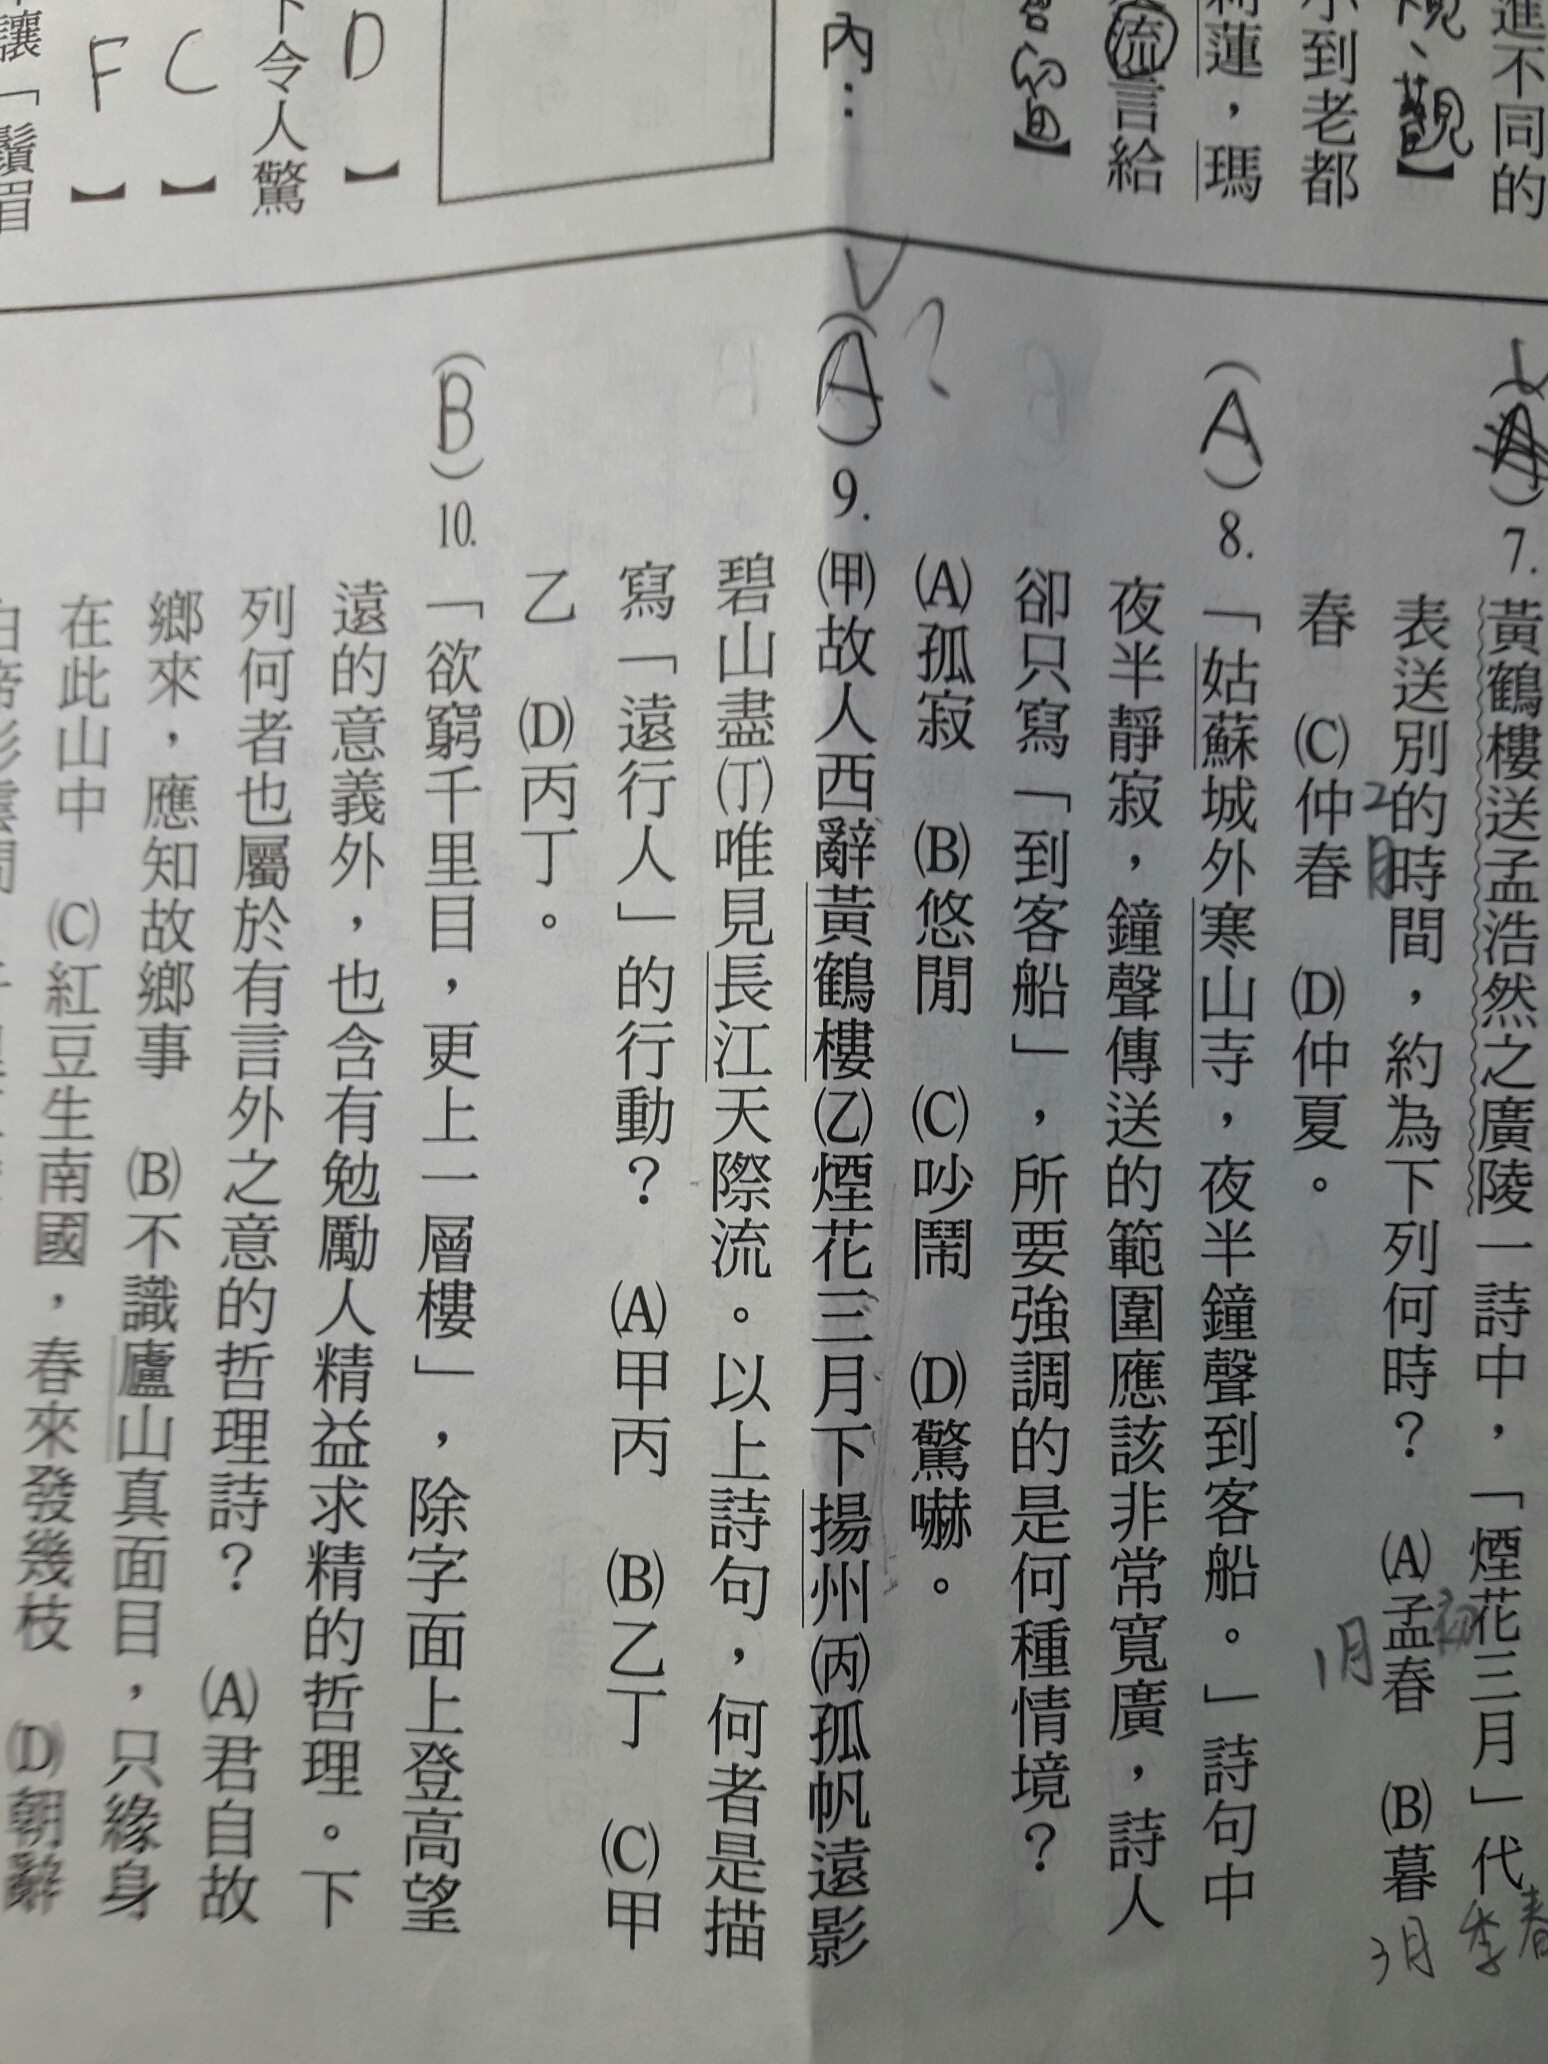 進不同的
觀】
示到老都
蓮，瑪
流言給
】
內：
D】
下令人驚
C】
F】
讓「鬚眉
(A)7.黃鶴樓送孟浩然之廣陵一詩中，「煙花三月」代
表送別的時間，約為下列何時？ (A)孟春 (B)暮
春 (C)仲春 (D)仲夏。
初
季春
2月
1月
3月
(A)8.「姑蘇城外寒山寺，夜半鐘聲到客船。」詩句中
夜半靜寂，鐘聲傳送的範圍應該非常寬廣，詩人
卻只寫「到客船」，所要強調的是何種情境？
(A)孤寂 (B)悠閒 (C)吵鬧 (D)驚嚇。
?
(A)9.(甲)故人西辭黃鶴樓(乙)煙花三月下揚州(丙)孤帆遠影
碧山盡(丁)唯見長江天際流。以上詩句，何者是描
寫「遠行人」的行動？ (A)甲丙 (B)乙丁 (C)甲
乙 (D)丙丁。
(B)10.「欲窮千里目，更上一層樓」，除字面上登高望
遠的意義外，也含有勉勵人精益求精的哲理。下
列何者也屬於有言外之意的哲理詩？ (A)君自故
鄉來，應知故鄉事 (B)不識廬山真面目，只緣身
在此山中 (C)紅豆生南國，春來發幾枝 (D)朝辭